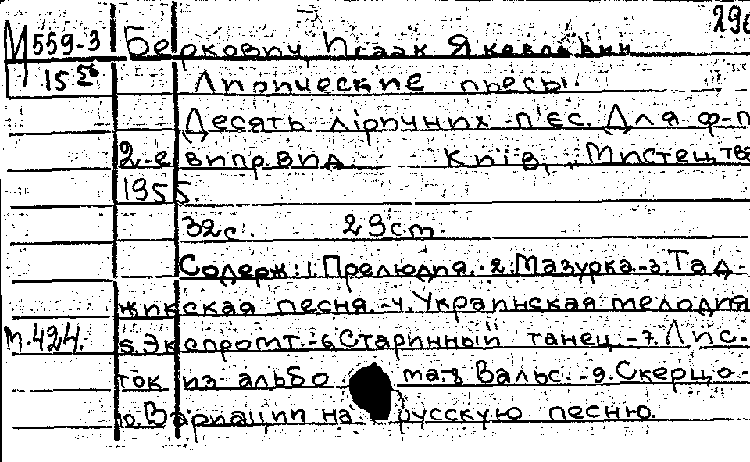 М 559-3 Беркович, Исаак Яковлевич 296
15 56 Лирические пьесы.
Десять ліричних п'єс. Для ф-п
2-е виправд. Київ, „Мистецтво
1955.
32с. 29ст.
Содерж: 1. Прелюдия.-2. Мазурка.-3. Тад-
жикская песня.-4. Украинская мелодия
м.424. 5. Экспромт.-6. Старинный танец.-7. Лис-
ток из альбома.-8. Вальс.-9. Скерцо.-
10. Вариации на русскую песню.